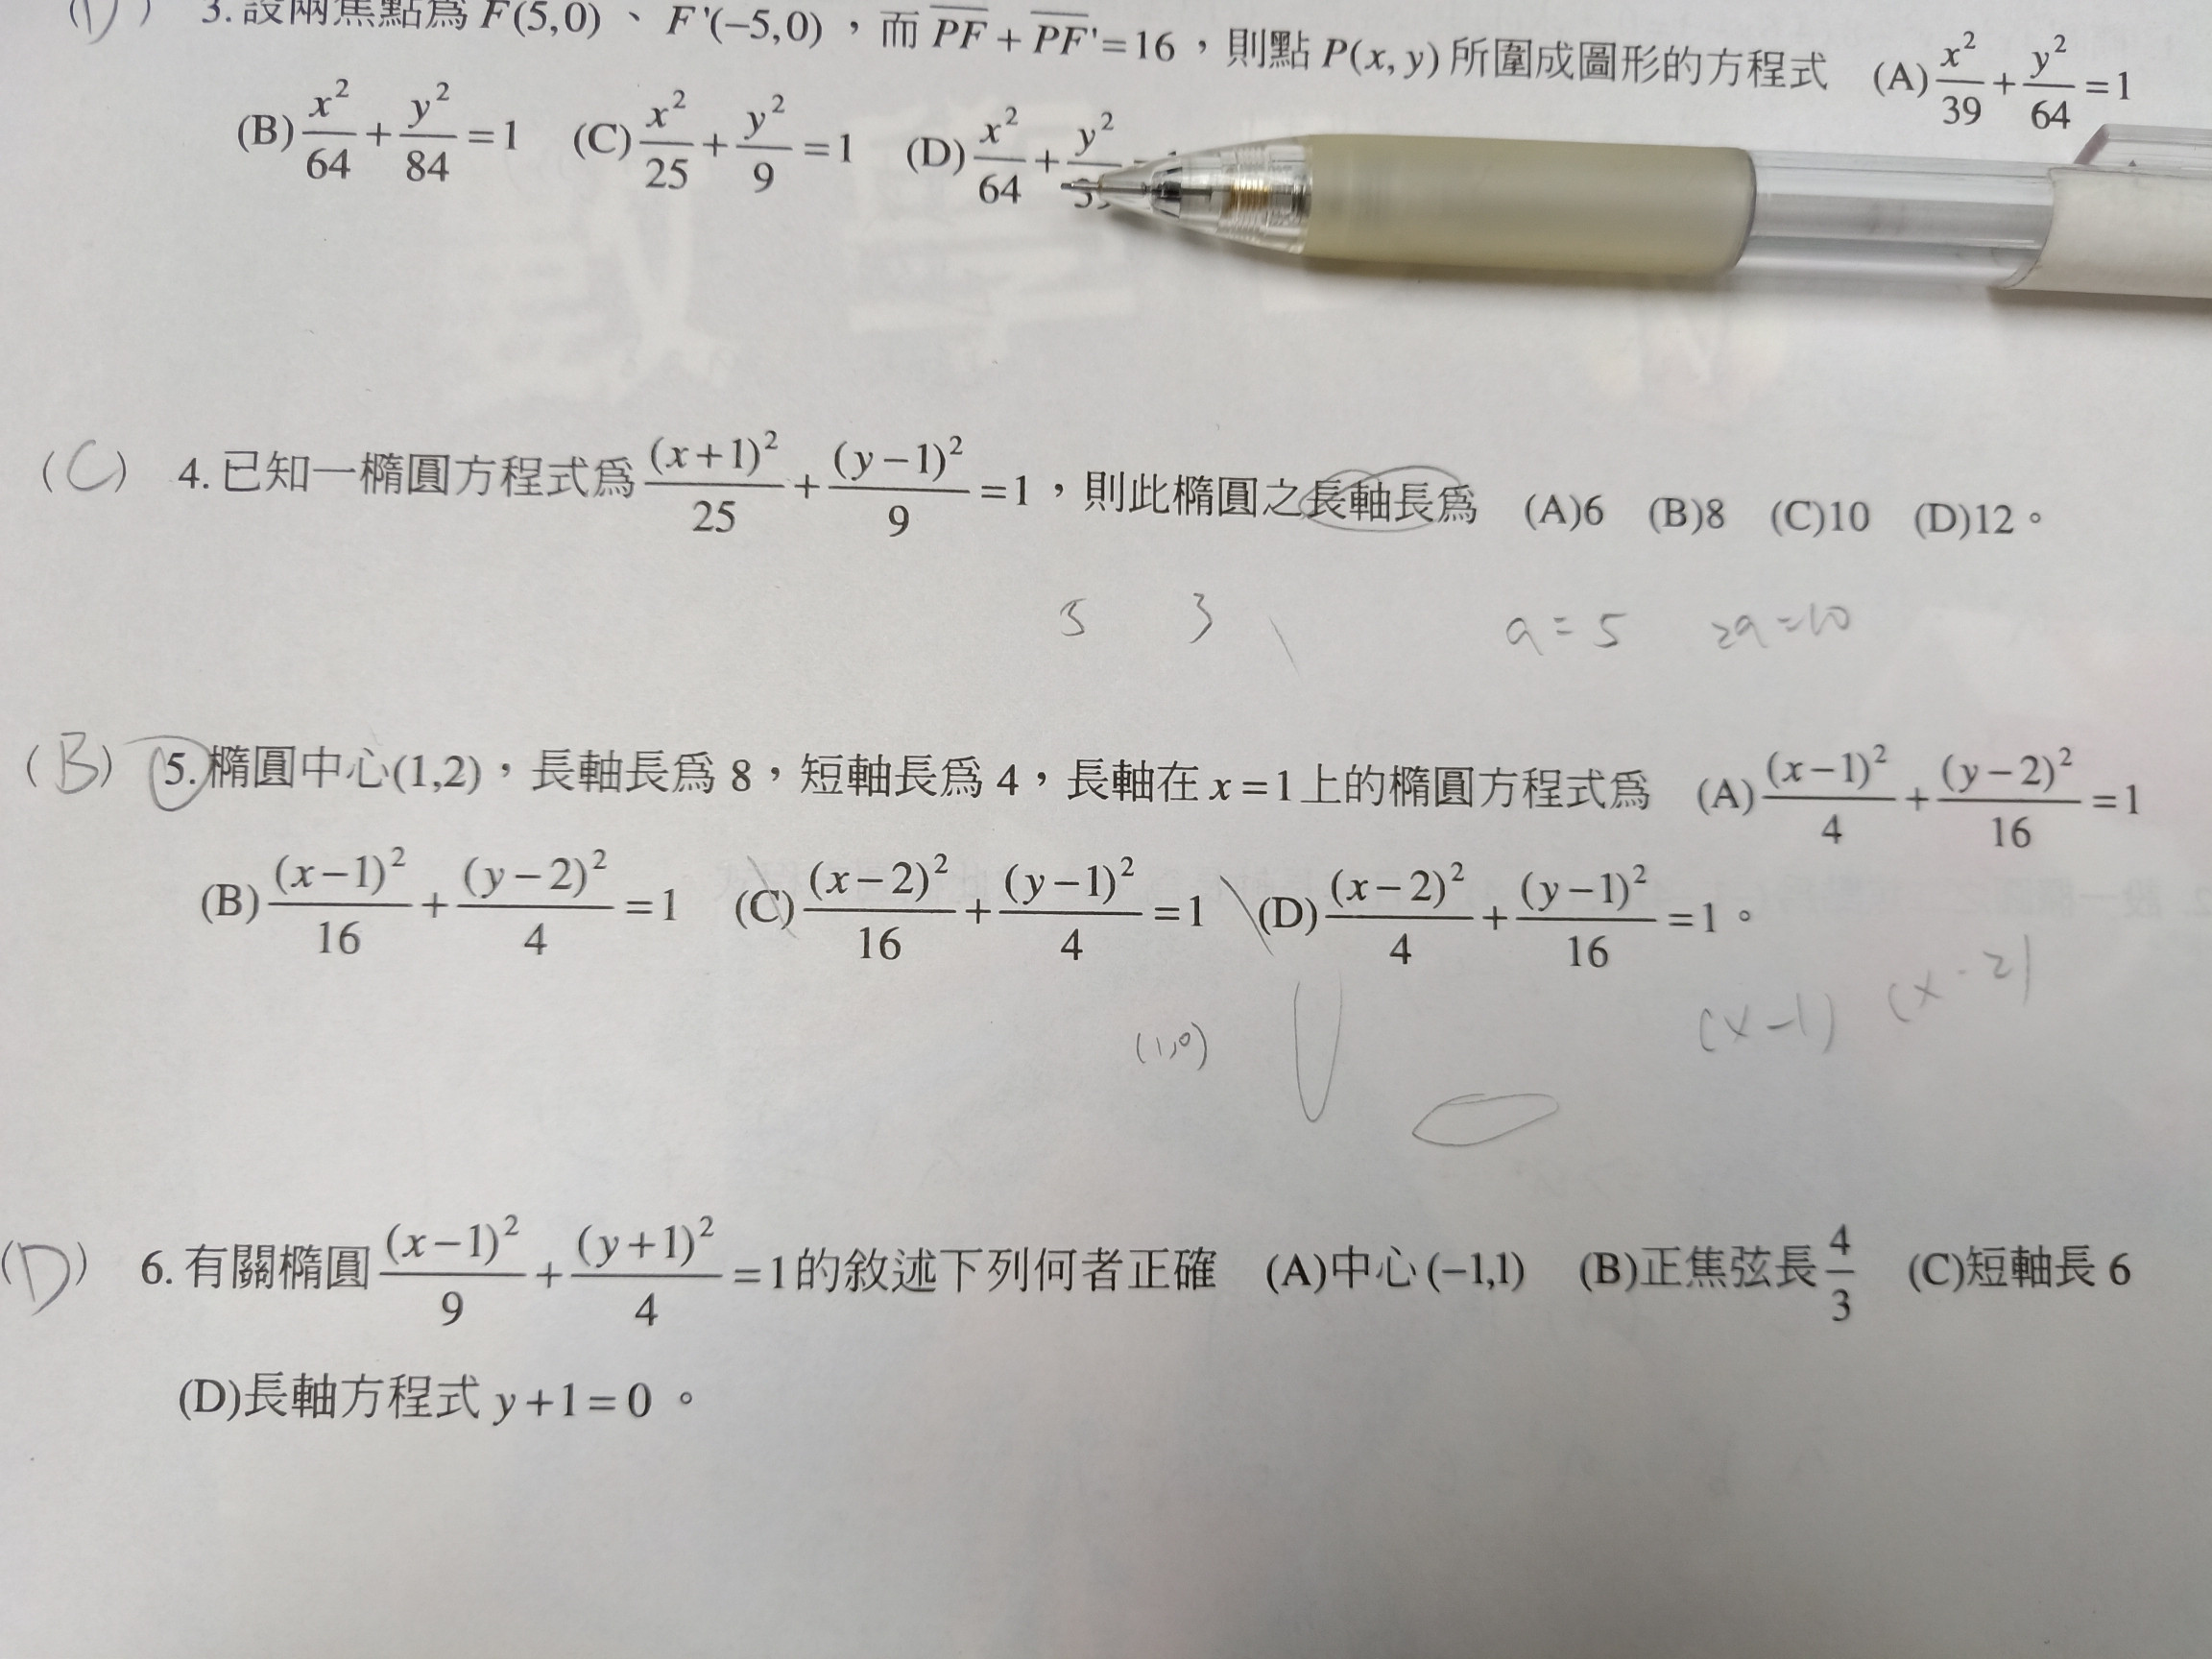 (D) 3. 設兩焦點為 F(5,0)、F'(−5,0),而 \overline{PF} + \overline{PF'} = 16,則點 P(x, y) 所圍成圖形的方程式 (A) \frac{x^2}{39} + \frac{y^2}{64} = 1
(B) \frac{x^2}{64} + \frac{y^2}{84} = 1 (C) \frac{x^2}{25} + \frac{y^2}{9} = 1 (D) \frac{x^2}{64} + \frac{y^2}{
(C) 4. 已知一橢圓方程式為 \frac{(x+1)^2}{25} + \frac{(y−1)^2}{9} = 1,則此橢圓之長軸長為 (A)6 (B)8 (C)10 (D)12。
5 3 a = 5 2a = 10
(B) 5. 橢圓中心(1,2),長軸長為 8,短軸長為 4,長軸在 x = 1 上的橢圓方程式為 (A) \frac{(x−1)^2}{4} + \frac{(y−2)^2}{16} = 1
(B) \frac{(x−1)^2}{16} + \frac{(y−2)^2}{4} = 1 (C) \frac{(x−2)^2}{16} + \frac{(y−1)^2}{4} = 1 (D) \frac{(x−2)^2}{4} + \frac{(y−1)^2}{16} = 1。
(1,0) (x−1) (x−2)
(D) 6. 有關橢圓 \frac{(x−1)^2}{9} + \frac{(y+1)^2}{4} = 1 的敘述下列何者正確 (A)中心(−1,1) (B)正焦弦長 \frac{4}{3} (C)短軸長 6
(D)長軸方程式 y + 1 = 0。